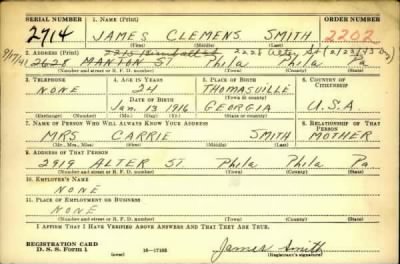 SERIAL NUMBER 1. NAME (Print) ORDER NUMBER
2714 JAMES CLEMENS SMITH 2202
(First) (Middle) (Last)
2. ADDRESS (Print) 2228 St (2/23/43
9/17/41 2628 MANTON ST Phila Phila Pa
(Number and street or R. F. D. number) (Town) (County) (State)
3. TELEPHONE 4. AGE IN YEARS 5. PLACE OF BIRTH 6. COUNTRY OF CITIZENSHIP
NONE 24 THOMASVILLE
DATE OF BIRTH (Town or county)
Jan. 13 1916 GEORGIA U.S.A
(Mo.) (Day) (Yr.) (State or country)
7. NAME OF PERSON WHO WILL ALWAYS KNOW YOUR ADDRESS 8. RELATIONSHIP OF THAT PERSON
MRS CARRIE SMITH MOTHER
(Mr., Mrs., Miss) (First) (Middle) (Last)
9. ADDRESS OF THAT PERSON
2919 ALTER ST Phila Phila Pa
(Number and street or R. F. D. number) (Town) (County) (State)
10. EMPLOYER'S NAME
NONE
11. PLACE OF EMPLOYMENT OR BUSINESS
NONE
(Number and street or R. F. D. number) (Town) (County) (State)
I AFFIRM THAT I HAVE VERIFIED ABOVE ANSWERS AND THAT THEY ARE TRUE.
REGISTRATION CARD
D. S. S. Form 1 (over) 16—17105 James Smith
(Registrant's signature)